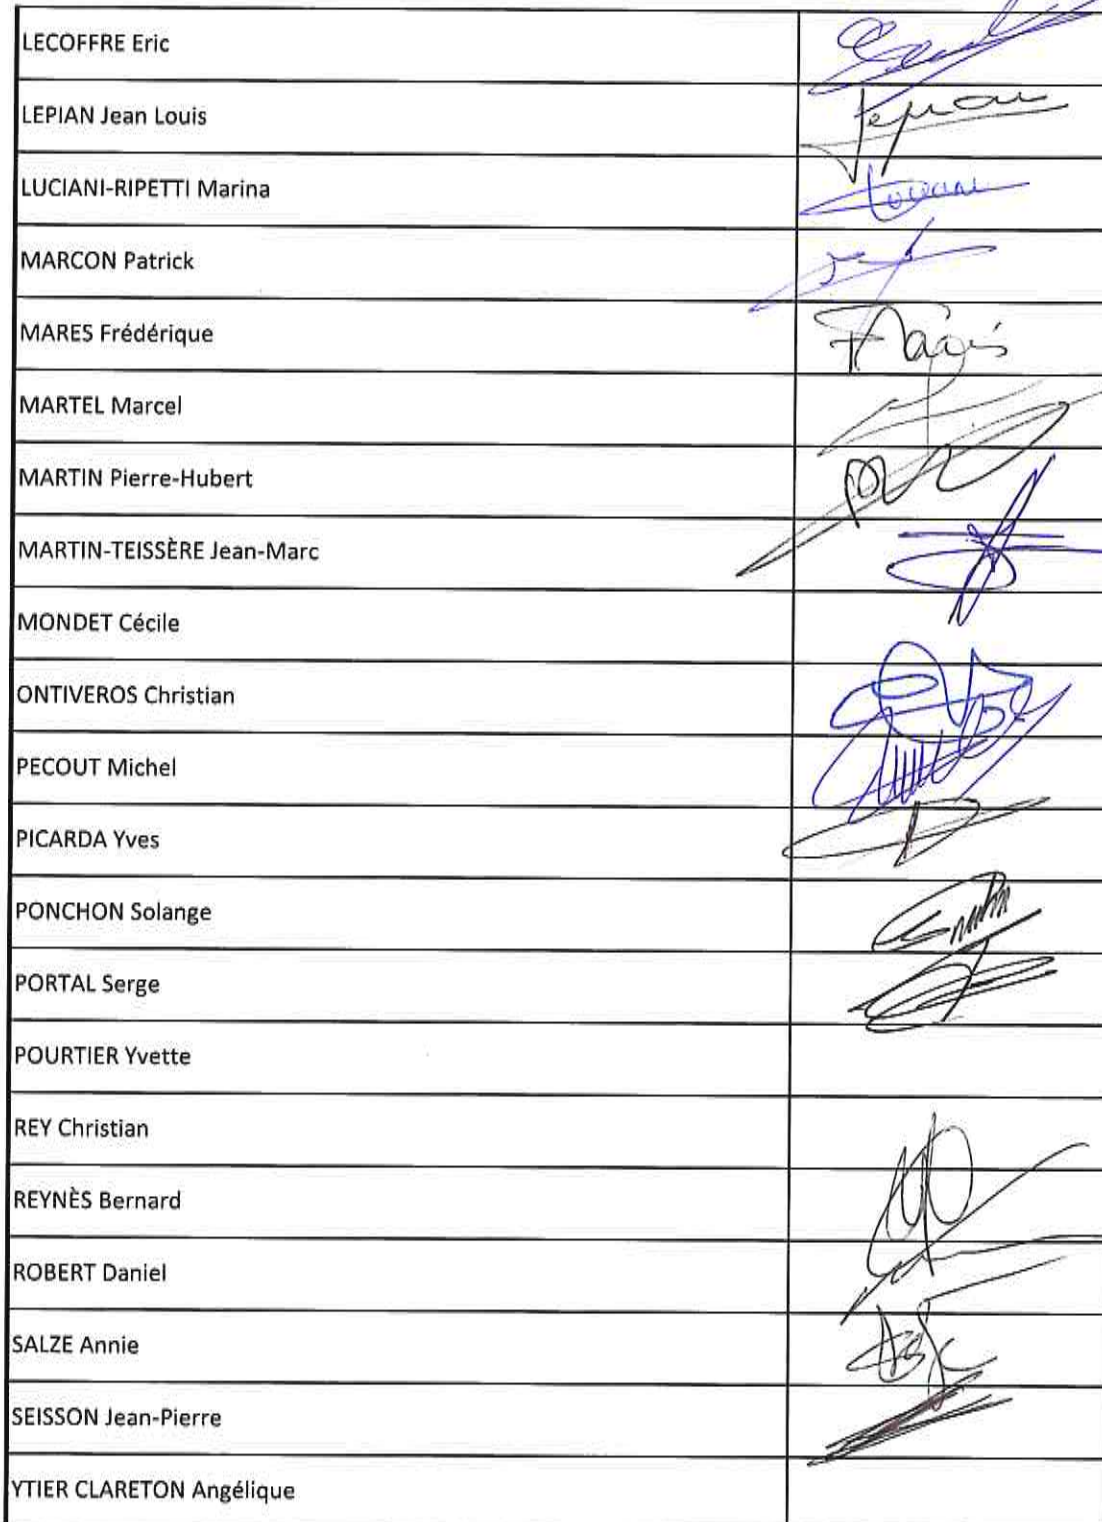 LECOFFRE Eric
LEPIAN Jean Louis
LUCIANI-RIPETTI Marina
MARCON Patrick
MARES Frédérique
MARTEL Marcel
MARTIN Pierre-Hubert
MARTIN-TEISSÈRE Jean-Marc
MONDET Cécile
ONTIVEROS Christian
PECOUT Michel
PICARDA Yves
PONCHON Solange
PORTAL Serge
POURTIER Yvette
REY Christian
REYNÈS Bernard
ROBERT Daniel
SALZE Annie
SEISSON Jean-Pierre
YTIER CLARETON Angélique